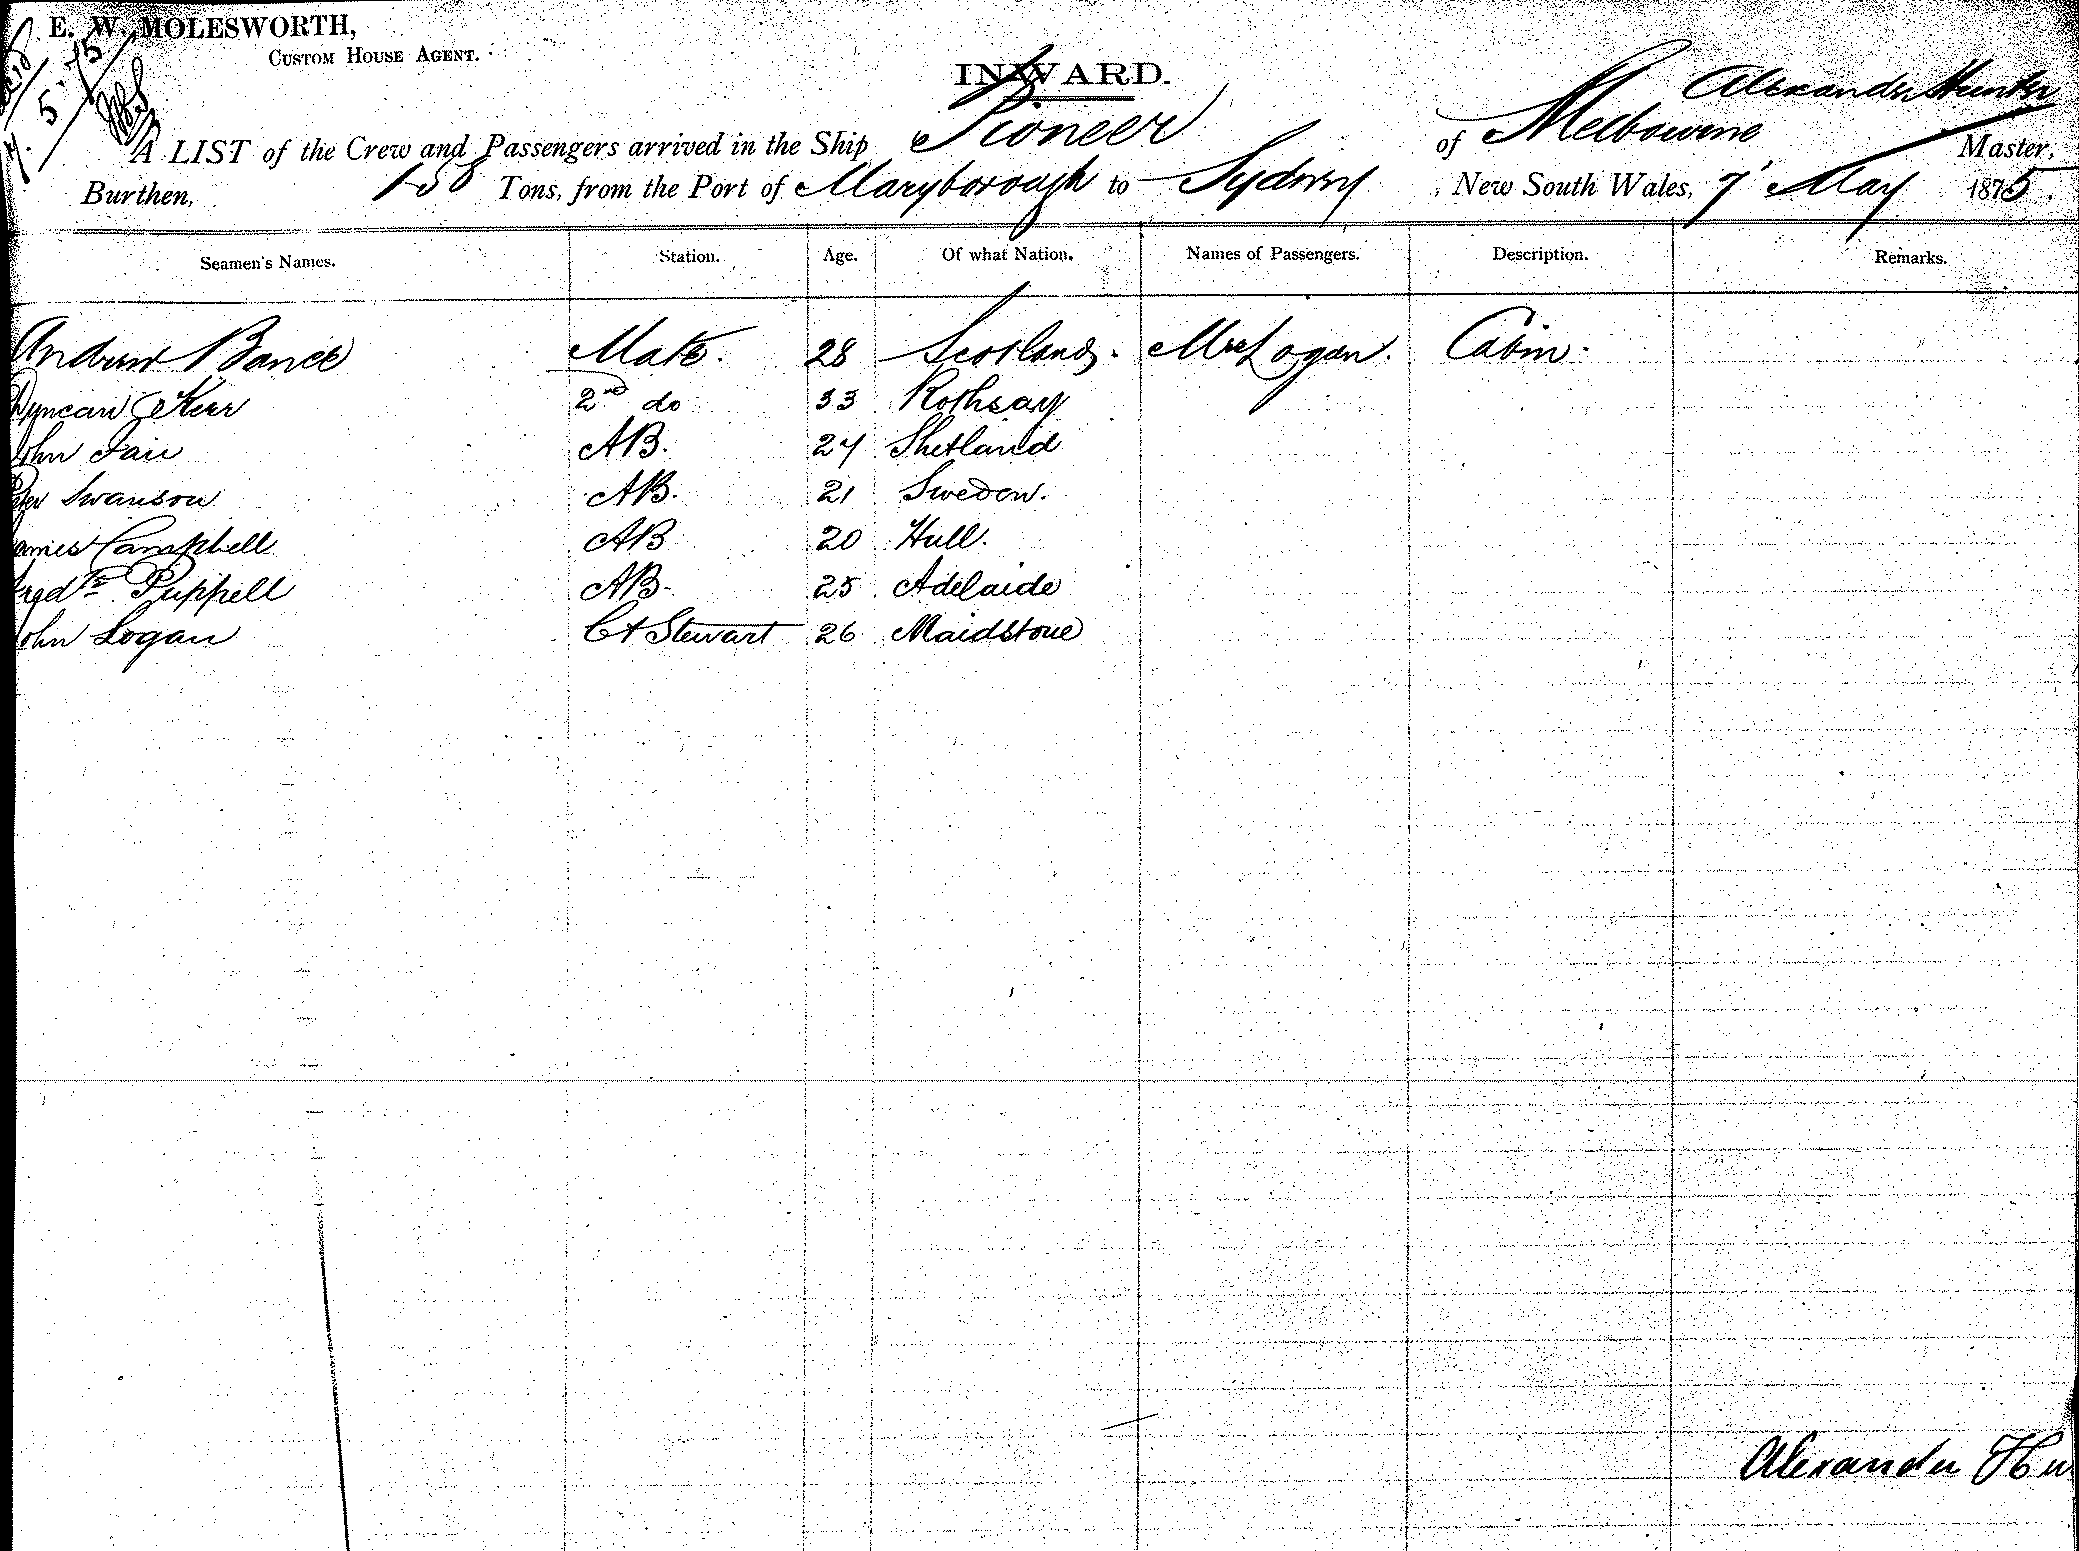 E. W. MOLESWORTH,
CUSTOM HOUSE AGENT.
5 75
INWARD.
Alexander Hunter
A LIST of the Crew and Passengers arrived in the Ship Pioneer of Melbourne Master,
Burthen, 158 Tons, from the Port of Maryborough to Sydney, New South Wales, 7 May 1875.
Seamen's Names. Station. Age. Of what Nation. Names of Passengers. Description. Remarks.
Andrew Bance Mate. 28 Scotland. Mrs Logan. Cabin.
Duncan Kerr 2nd do 33 Rothsay
John Fair AB. 24 Shetland
Peter Swanson AB. 21 Sweden.
James Campbell AB 20 Hull.
Fredk Puppell AB. 25 Adelaide
John Logan Ct Stewart 26 Maidstone
Alexander Hu